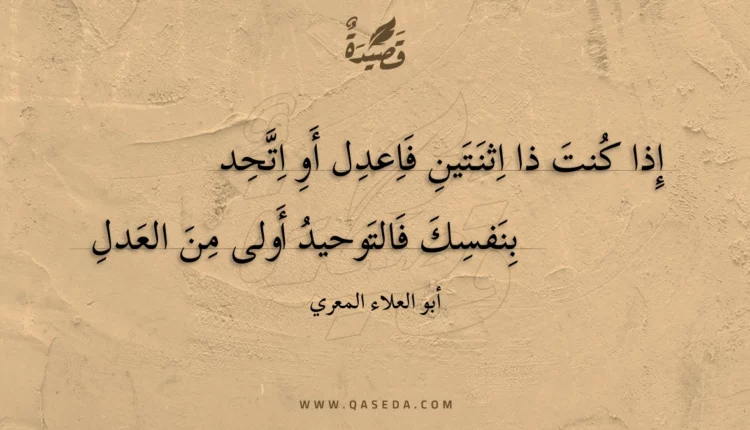 قَصِيْدَةٌ
إِذا كُنتَ ذا اِثنَتَينِ فَاِعدِل أَوِ اِتَّحِد
بِنَفسِكَ فَالتَوحيدُ أَولى مِنَ العَدلِ
أبو العلاء المعري
WWW.QASEDA.COM